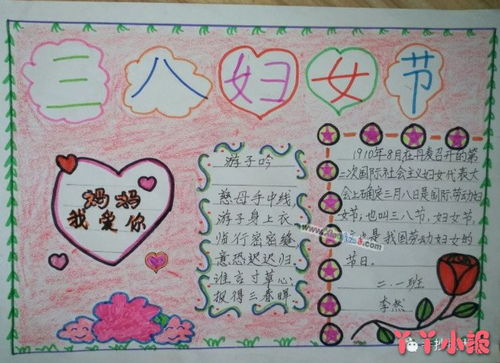 三八妇女节
妈妈
我爱你
游子吟
慈母手中线
游子身上衣
临行密密缝
意恐迟迟归
谁言寸草心
报得三春晖
1910年8月在丹麦召开的第
二次国际社会主义妇女代表大
会上确定三月八日是国际劳动妇
女节,也叫三八节,妇女节,
是我国劳动妇女的
节日。
二.一班
李然
丫丫小报